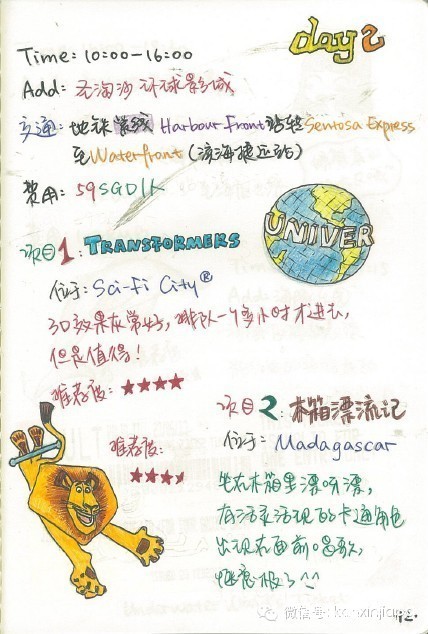 day 2
Time: 10:00-16:00
Add: 圣淘沙环球影城
交通: 地铁紫线 Harbour Front站转Sentosa Express
至Waterfront (滨海捷运站)
费用: 59SGD/人
UNIVER
项目1: TRANSFORMERS
位于: Sci-Fi City®
3D效果非常好, 排队一个多小时才进去,
但是值得!
推荐度: ★★★★
项目2: 木箱漂流记
推荐度:
★★★★
位于: Madagascar
坐在木箱里漂呀漂,
有活灵活现的卡通角色
出现在面前唱歌,
惬意极了^^
微信号: kanxinjiapo